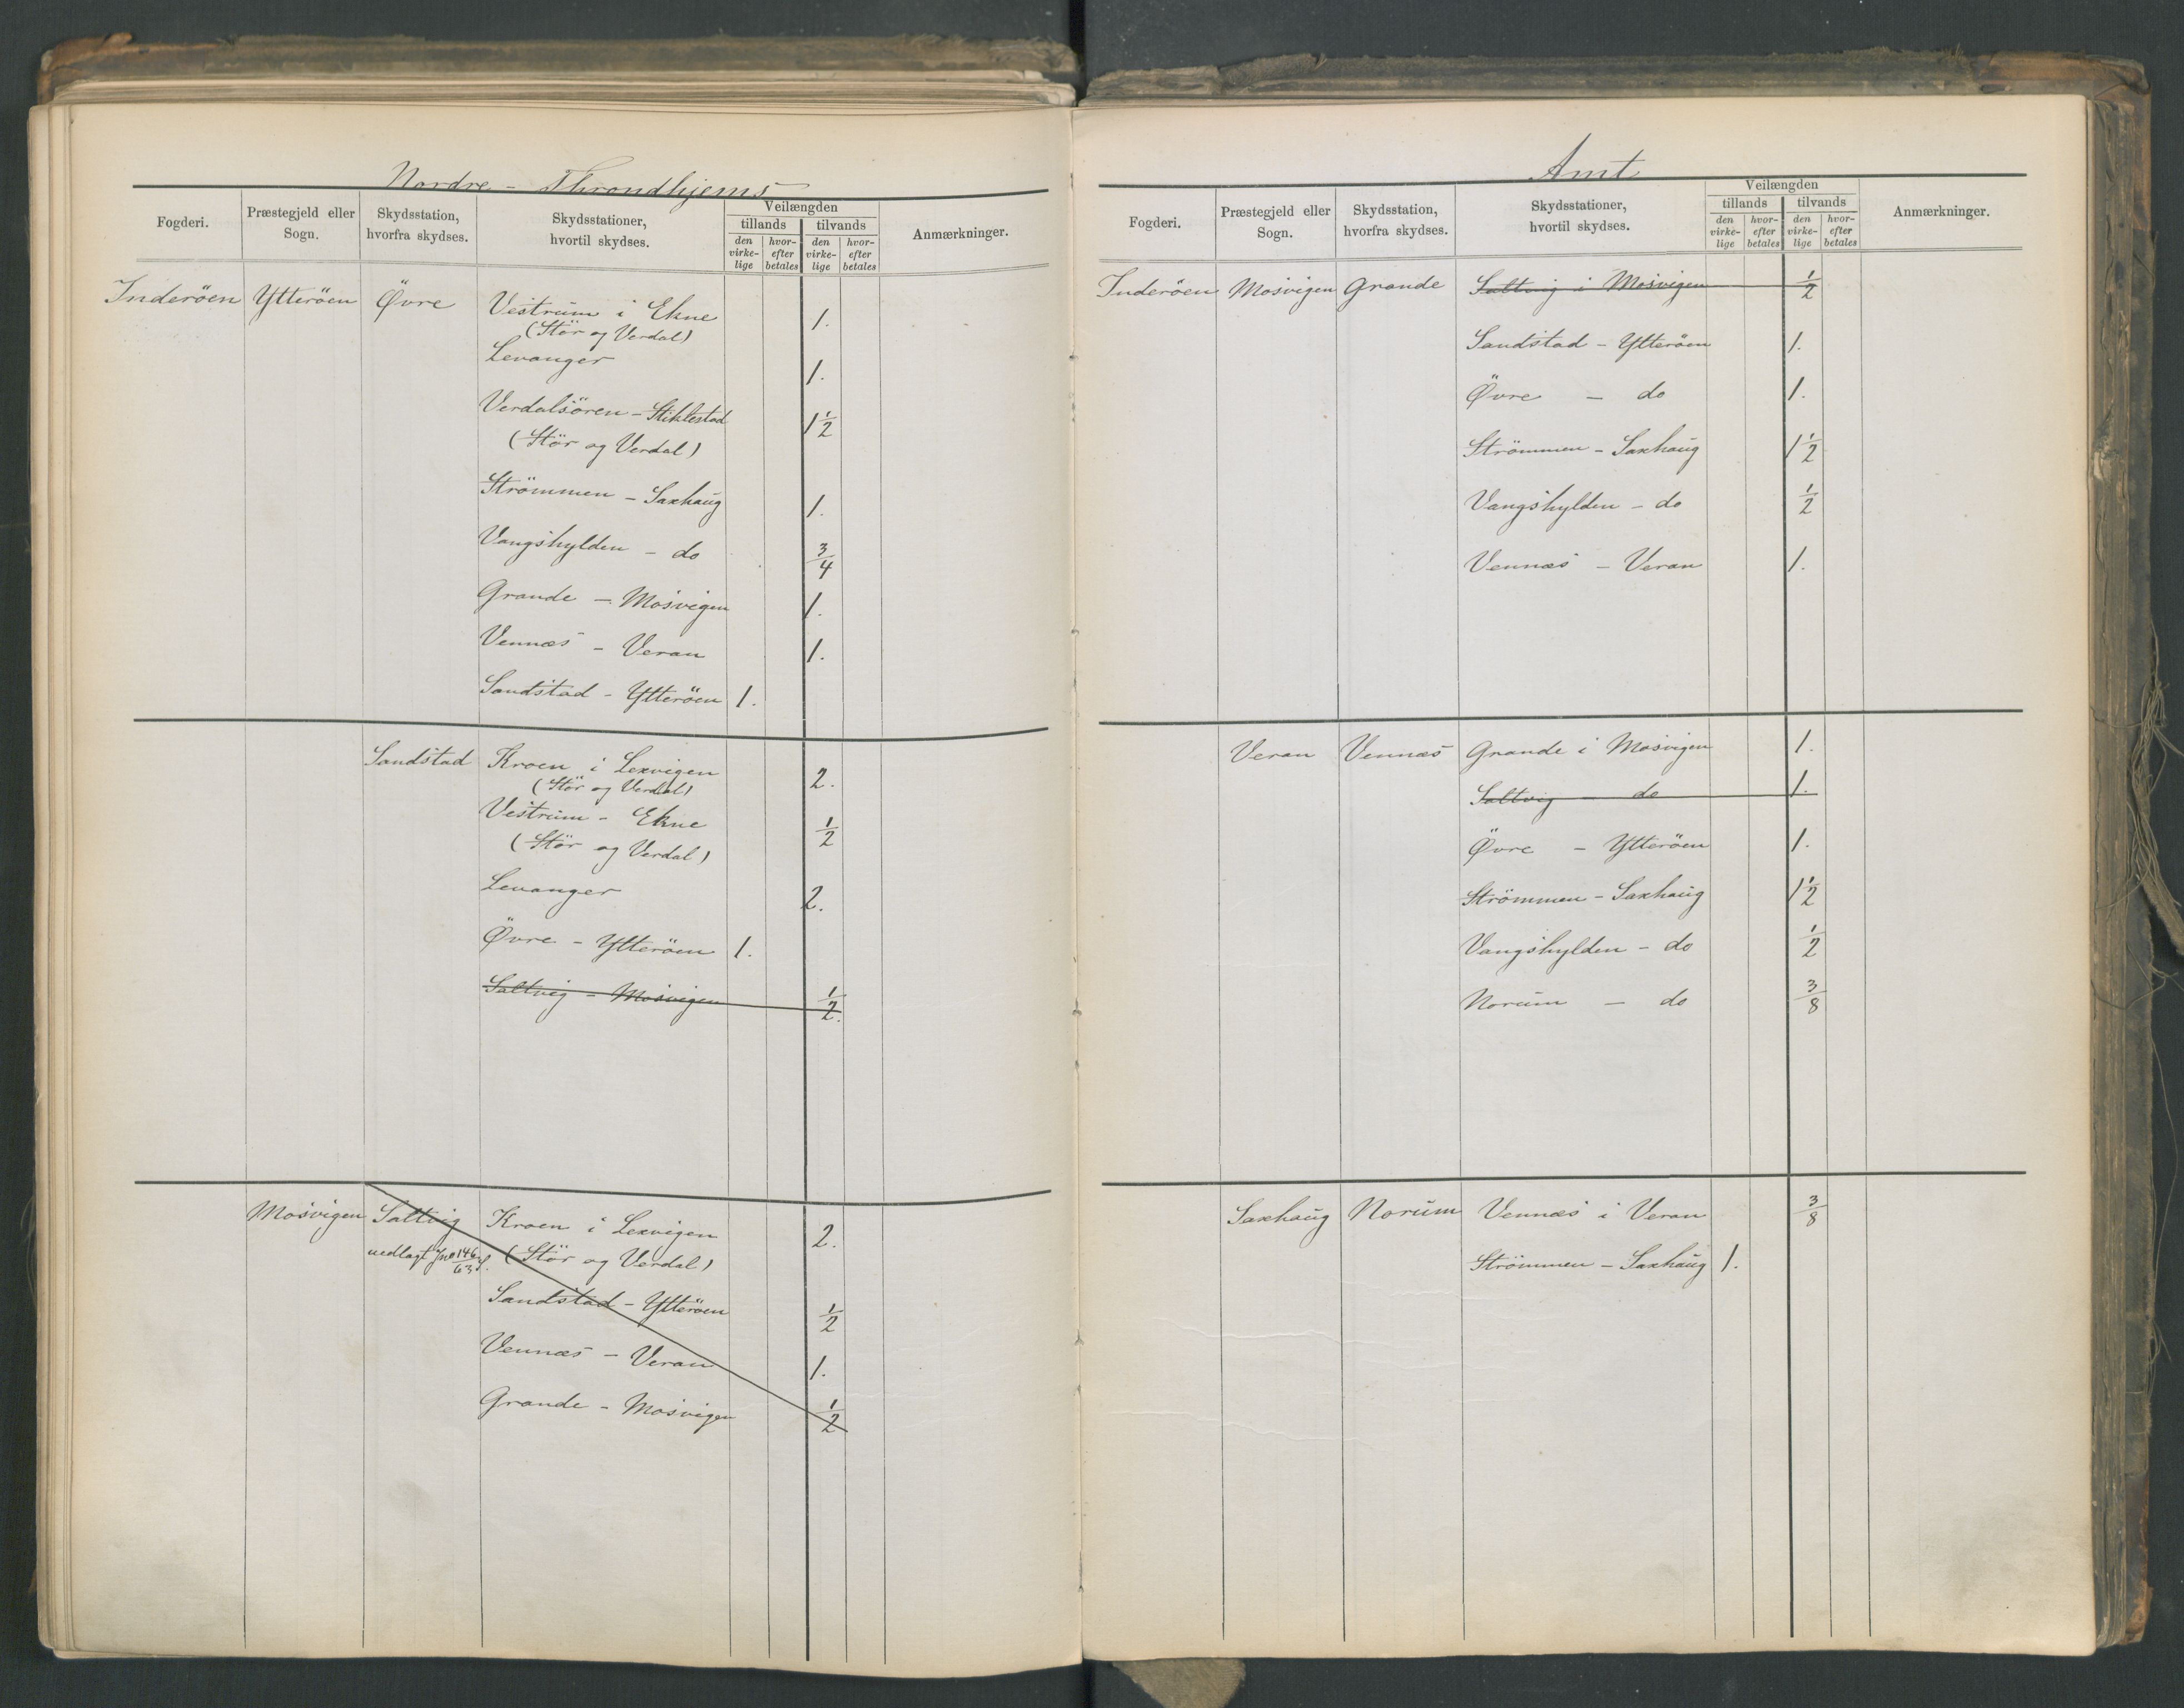 Nordre - Throndhjems
Fogderi. Præstegjeld eller Sogn. Skydsstation, hvorfra skydses. Skydsstationer, hvortil skydses. Veilængden tillands tilvands den virkelige hvorefter betales den virkelige hvorefter betales Anmærkninger.
Inderöen Ytteröen Övre Vestrum i Ekne 1.
(Stör og Verdal)
Levanger 1.
Verdalsören - Stiklestad 1 1/2
(Stör og Verdal)
Strömmen - Saxhaug 1.
Vangshylden - do 3/4
Grande - Mosvigen 1.
Vennæs - Veran 1.
Sandstad - Ytteröen 1.
Sandstad Kroen i Lexvigen 2.
(Stör og Verdal)
Vestrum - Ekne 1/2
(Stör og Verdal)
Levanger 2.
Övre - Ytteröen 1.
Saltvig - Mosvigen 1/2.
Mosvigen Saltvig Kroen i Lexvigen 2.
nedlagt Jno 146/63 S. (Stör og Verdal)
Sandstad - Ytteröen 1/2
Vennæs - Veran 1.
Grande - Mosvigen 1/2
Amt
Fogderi. Præstegjeld eller Sogn. Skydsstation, hvorfra skydses. Skydsstationer, hvortil skydses. Veilængden tillands tilvands den virkelige hvorefter betales den virkelige hvorefter betales Anmærkninger.
Inderöen Mosvigen Grande Saltvig i Mosvigen 1/2
Sandstad - Ytteröen 1.
Övre - do 1.
Strömmen - Saxhaug 1 1/2
Vangshylden - do 1/2
Vennæs - Veran 1.
Veran Vennæs Grande i Mosvigen 1.
Saltvig - do 1.
Övre - Ytteröen 1.
Strömmen - Saxhaug 1 1/2
Vangshylden - do 1/2
Norum - do 3/8
Saxhaug Norum Vennæs i Veran 3/8
Strömmen - Saxhaug 1.